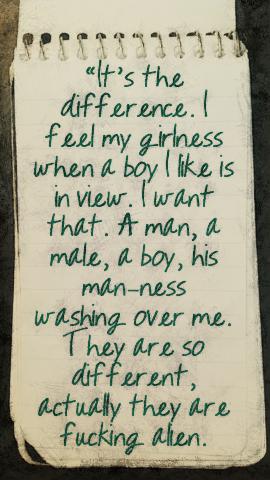 “It's the
difference. I
feel my girlness
when a boy I like is
in view. I want
that. A man, a
male, a boy, his
man-ness
washing over me.
They are so
different,
actually they are
fucking alien.